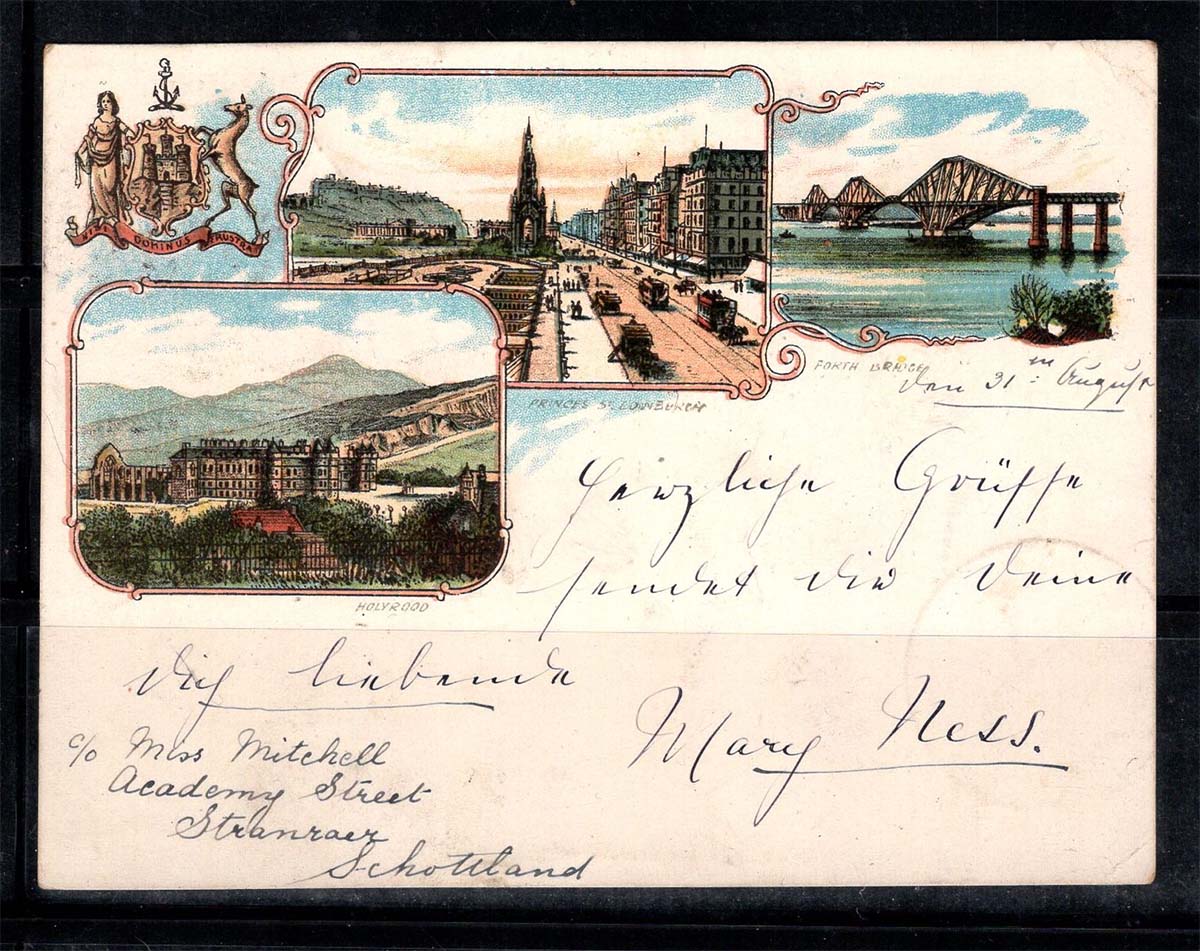 NISI DOMINUS FRUSTRA
FORTH BRIDGE
den 31ten August
PRINCES St. EDINBURGH
Herzliche Grüsse
sendet dir Deine
HOLYROOD
dich liebende
Mary Ness.
c/o Miss Mitchell
Academy Street
Stranraer
Schottland